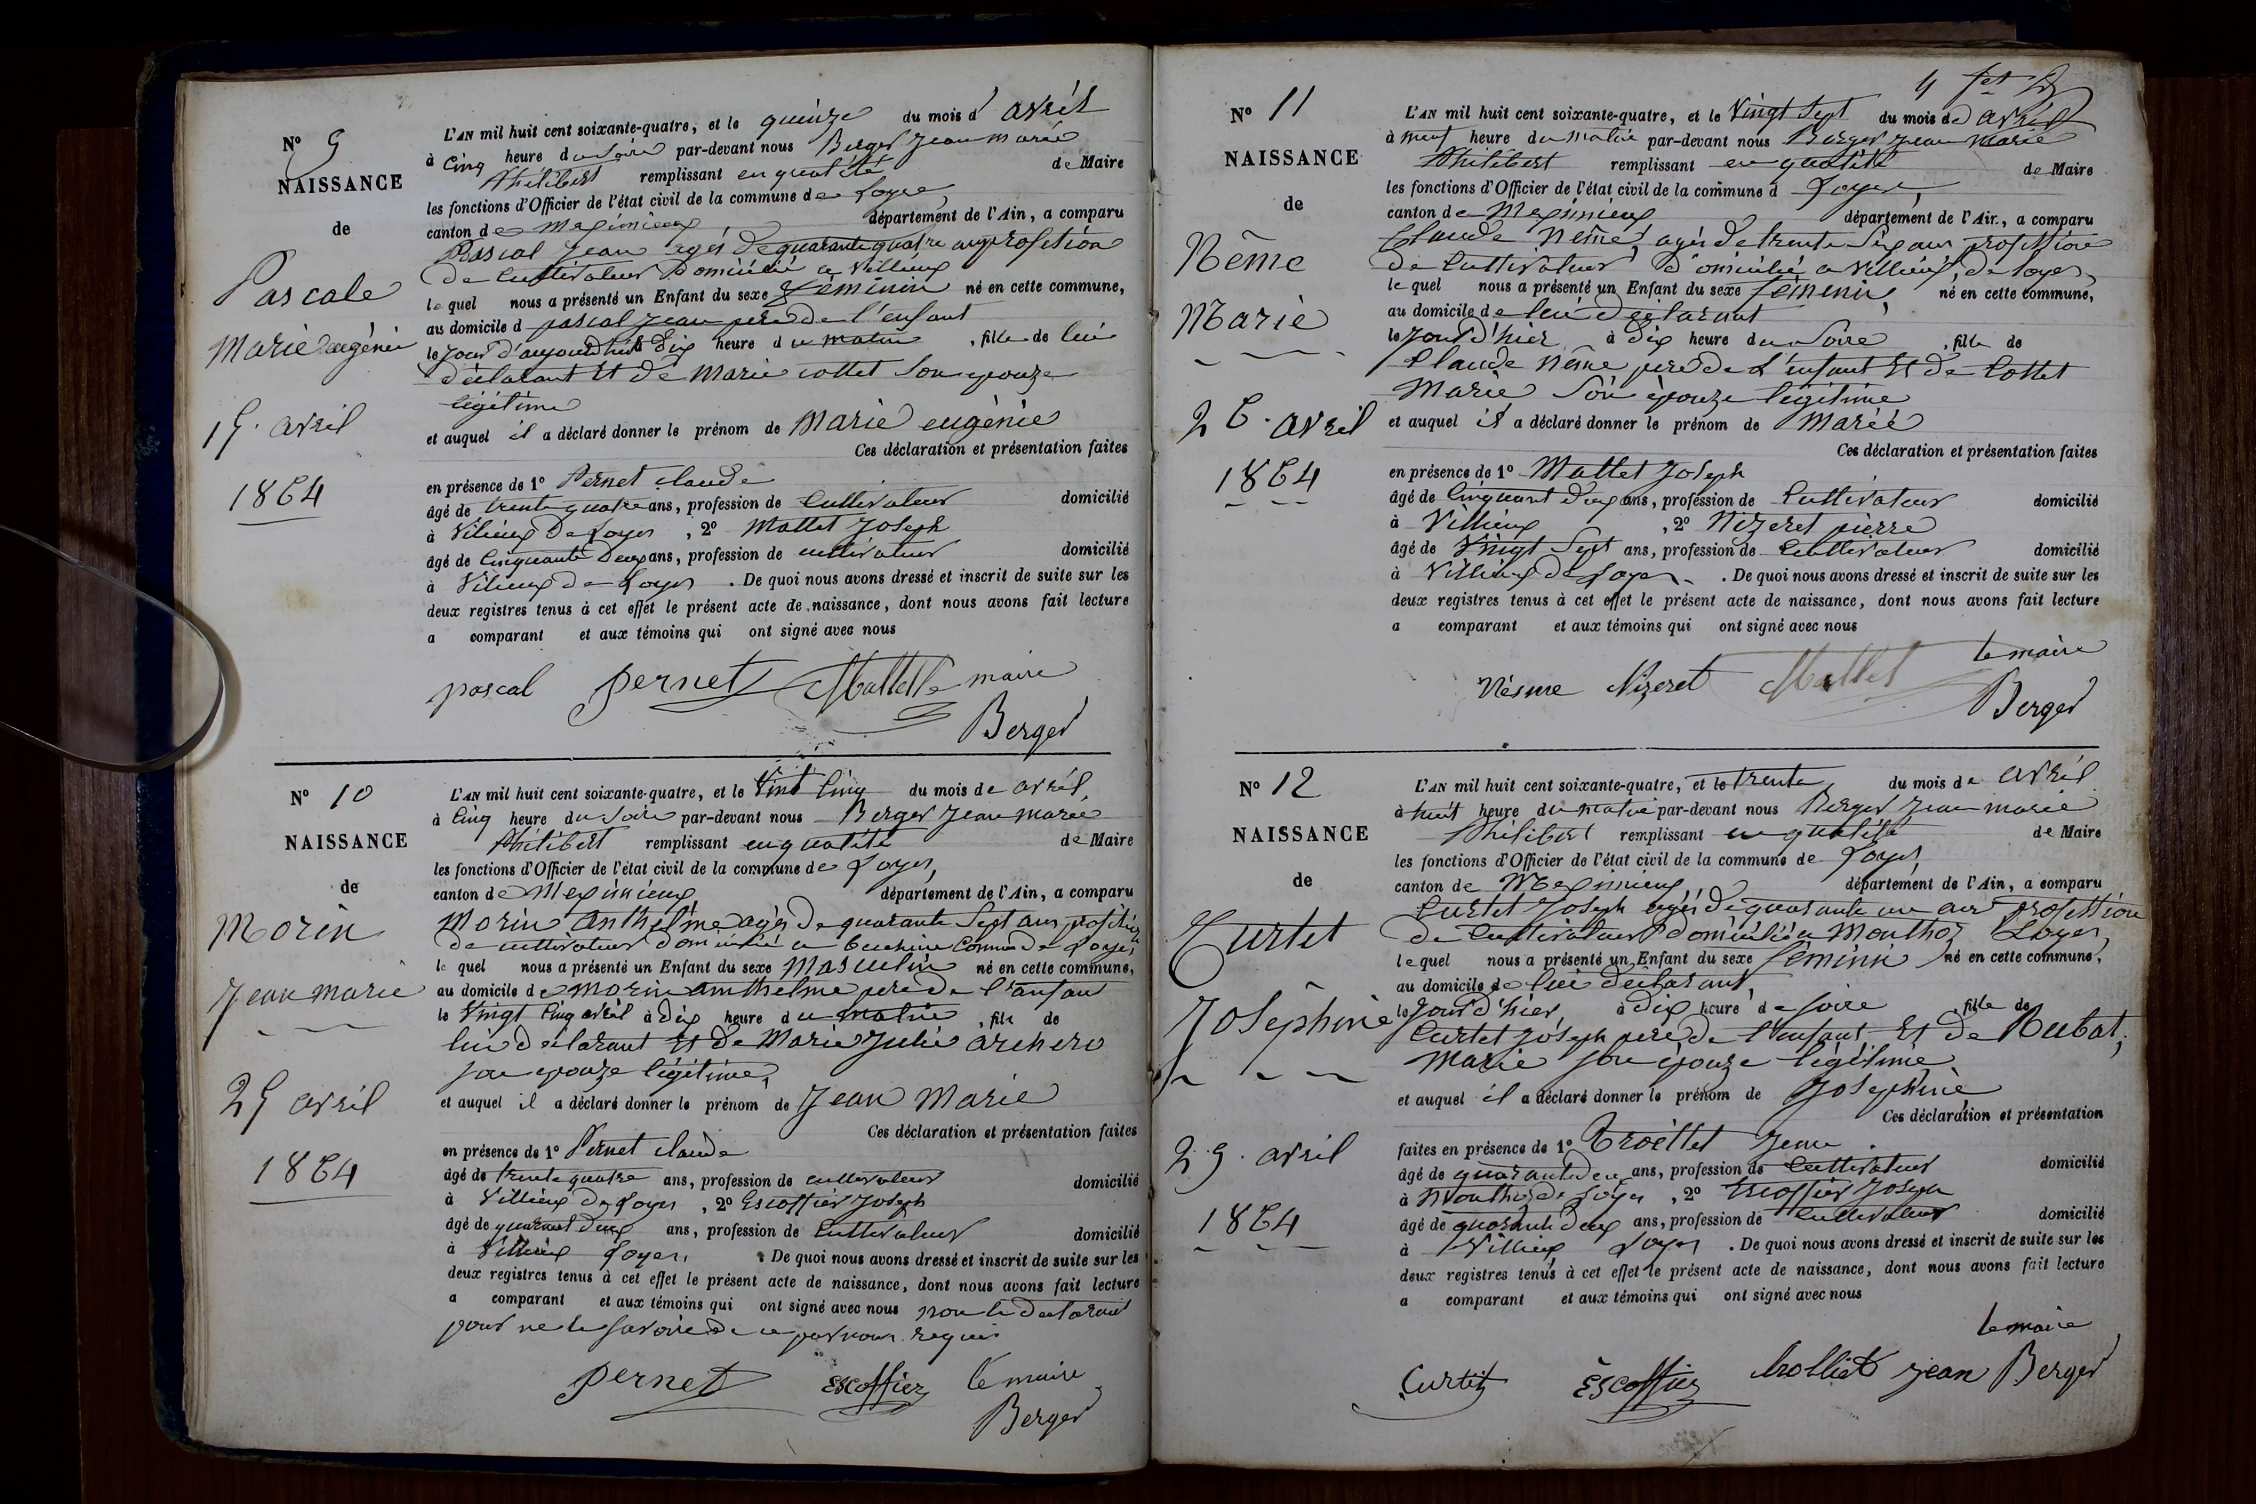 N° 9
NAISSANCE
de
Pascale
Marie eugénie
15. avril
1864
L'AN mil huit cent soixante-quatre, et le quinze du mois d' avril
à cinq heure du soire par-devant nous Berger Jean marie
Philibert remplissant en qualité de Maire
les fonctions d'Officier de l'état civil de la commune de Loyes,
canton de Meximieux département de l'Ain, a comparu
Pascal Jean agés de quarante quatre ans profession
de cultivateur domicilié a Villieux
lequel nous a présenté un Enfant du sexe féminin né en cette commune,
au domicile d pascal jean pere de l'enfant
le jour d'aujourdhui à dix heure du matin, fille de lui
déclarant Et de Marie cottet son epouze
légitime
et auquel il a déclaré donner le prénom de Marie eugénie
Ces déclaration et présentation faites
en présence de 1° Pernet claude
âgé de trente quatre ans, profession de cultivateur domicilié
à Vilieux de Loyes, 2° Mallet Joseph
âgé de Cinquante deux ans, profession de cultivateur domicilié
à Vilieux de Loyes. De quoi nous avons dressé et inscrit de suite sur les
deux registres tenus à cet effet le présent acte de naissance, dont nous avons fait lecture
a comparant et aux témoins qui ont signé avec nous
pascal pernet Mallet le maire
Berger
N° 10
NAISSANCE
de
Morin
Jean marie
25 avril
1864
L'AN mil huit cent soixante-quatre, et le Vint Cinq du mois de avril,
à Cinq heure du soire par-devant nous Berger Jean marie
Philibert remplissant en qualité de Maire
les fonctions d'Officier de l'état civil de la commune de Loyes,
canton de Meximieux département de l'Ain, a comparu
Morin Anthelme agés de quarante Sept ans profession
de cultivateur domicilié a Commune de Loyes,
le quel nous a présenté un Enfant du sexe Masculin né en cette commune,
au domicile de morin anthelme pere de l'anfan
le Vingt Cinq avril à dix heure du matin, fils de
lui declarant Et de Marie Julie
son epouze légitime,
et auquel il a déclaré donner le prénom de Jean Marie
Ces déclaration et présentation faites
en présence de 1° Pernet claude
âgé de trente quatre ans, profession de cultivateur domicilié
à Villieux de Loyes, 2° Escoffier Joseph
âgé de quarant deux ans, profession de Cultivateur domicilié
à Villieux Loyes, De quoi nous avons dressé et inscrit de suite sur les
deux registres tenus à cet effet le présent acte de naissance, dont nous avons fait lecture
a comparant et aux témoins qui ont signé avec nous non le declarant
pour ne le savoire de ce par nous requis
pernet Escoffier le maire
Berger
N° 11
NAISSANCE
de
Nême
Marie
26. avril
1864
L'AN mil huit cent soixante-quatre, et le Vingt Sept du mois de avril
à neuf heure du matin par-devant nous Berger Jean Marie
Philibert remplissant en qualité de Maire
les fonctions d'Officier de l'état civil de la commune d Loyes,
canton de Meximieux département de l'Ain, a comparu
Claude Nême, agés de trente Six ans profession
de Cultivateur domicilié a Villieux, de Loyes,
le quel nous a présenté un Enfant du sexe féminin, né en cette commune,
au domicile de lui déclarant
le jour d'hier à dix heure du Soire, fille de
Claude Nême pere de L'enfant Et de Cottet
Marie Son épouze légitime
et auquel il a déclaré donner le prénom de Marie
Ces déclaration et présentation faites
en présence de 1° Mallet Joseph
âgé de Cinquant deux ans, profession de Cultivateur domicilié
à Villieux, 2° Nizeret pierre
âgé de Vingt Sept ans, profession de Cultivateur domicilié
à Villieux de Loyes. De quoi nous avons dressé et inscrit de suite sur les
deux registres tenus à cet effet le présent acte de naissance, dont nous avons fait lecture
a comparant et aux témoins qui ont signé avec nous
Nésme Nizeret Mallet le maire
Berger
N° 12
NAISSANCE
de
Curtet
Joséphine
29. avril
1864
L'AN mil huit cent soixante-quatre, et le trente du mois de avril
à huit heure du matin par-devant nous Berger Jean marie
Philibert remplissant en qualité de Maire
les fonctions d'Officier de l'état civil de la commune de Loyes,
canton de Meximieux, département de l'Ain, a comparu
Curtet Joseph agés de quarante un ans profession
de Cultivateur domicilié a Monthoz Loyes,
lequel nous a présenté un Enfant du sexe féminin né en cette commune,
au domicile de lui déclarant,
le jour d'hier, à dix heure de soire, fille de
Curtet Joseph pere de l'enfant Et de Rubat,
Marie son épouze légitime,
et auquel il a déclaré donner le prénom de Joséphine,
Ces déclaration et présentation
faites en présence de 1° Jean
âgé de quarante deux ans, profession de Cultivateur domicilié
à Monthoz de Loyes, 2° Escoffier Joseph
âgé de quarante deux ans, profession de Cultivateur domicilié
à Villieux Loyes. De quoi nous avons dressé et inscrit de suite sur les
deux registres tenus à cet effet le présent acte de naissance, dont nous avons fait lecture
a comparant et aux témoins qui ont signé avec nous
le maire
Curtet Escoffier trolliet jean Berger